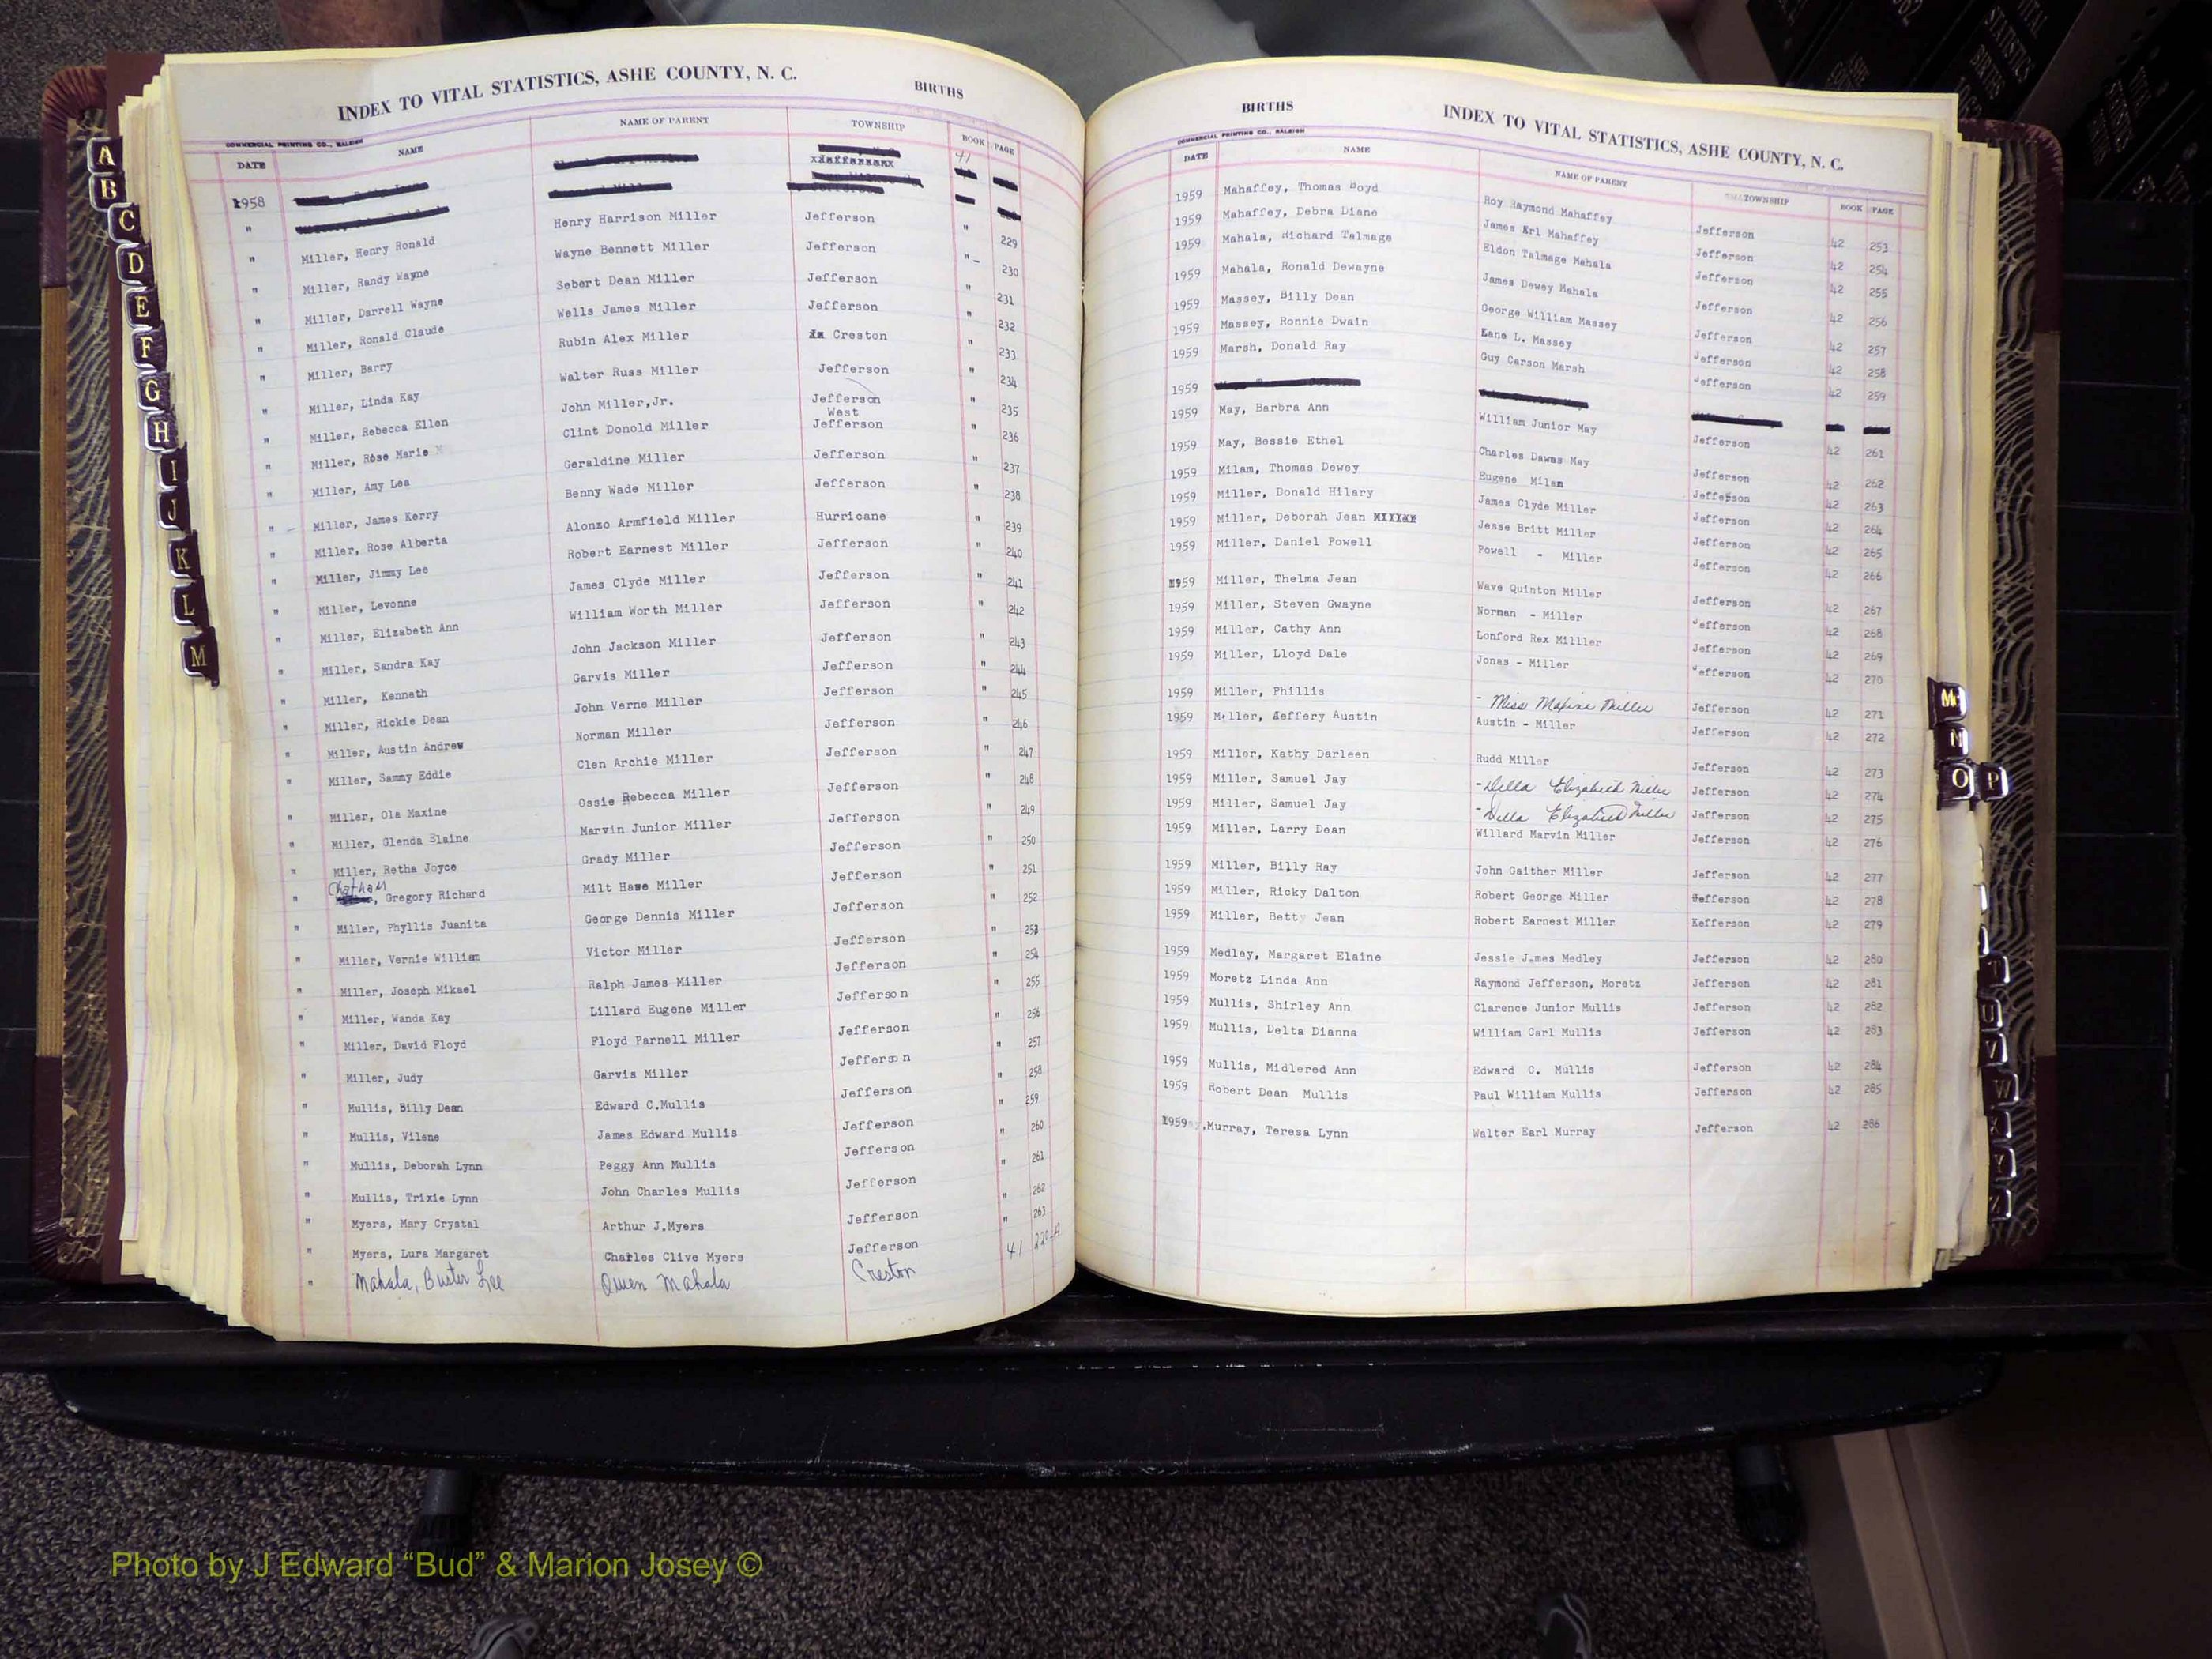 INDEX TO VITAL STATISTICS, ASHE COUNTY, N. C. BIRTHS
COMMERCIAL PRINTING CO., RALEIGH
DATE NAME NAME OF PARENT TOWNSHIP BOOK PAGE
1958 41
"
" Miller, Henry Ronald Henry Harrison Miller Jefferson " 229
" Miller, Randy Wayne Wayne Bennett Miller Jefferson " 230
" Miller, Darrell Wayne Sebert Dean Miller Jefferson " 231
" Miller, Ronald Claude Wells James Miller Jefferson " 232
" Miller, Barry Rubin Alex Miller Creston " 233
" Miller, Linda Kay Walter Russ Miller Jefferson " 234
" Miller, Rebecca Ellen John Miller,Jr. Jefferson " 235
" Miller, Rose Marie Clint Donold Miller West Jefferson " 236
" Miller, Amy Lea Geraldine Miller Jefferson " 237
" Miller, James Kerry Benny Wade Miller Jefferson " 238
" Miller, Rose Alberta Alonzo Armfield Miller Hurricane " 239
" Miller, Jimmy Lee Robert Earnest Miller Jefferson " 240
" Miller, Levonne James Clyde Miller Jefferson " 241
" Miller, Elizabeth Ann William Worth Miller Jefferson " 242
" Miller, Sandra Kay John Jackson Miller Jefferson " 243
" Miller, Kenneth Garvis Miller Jefferson " 244
" Miller, Rickie Dean John Verne Miller Jefferson " 245
" Miller, Austin Andrew Norman Miller Jefferson " 246
" Miller, Sammy Eddie Clen Archie Miller Jefferson " 247
" Miller, Ola Maxine Ossie Rebecca Miller Jefferson " 248
" Miller, Glenda Elaine Marvin Junior Miller Jefferson " 249
" Miller, Retha Joyce Grady Miller Jefferson " 250
" Chatham, Gregory Richard Milt Hawe Miller Jefferson " 251
" Miller, Phyllis Juanita George Dennis Miller Jefferson " 252
" Miller, Vernie William Victor Miller Jefferson " 253
" Miller, Joseph Mikael Ralph James Miller Jefferson " 254
" Miller, Wanda Kay Lillard Eugene Miller Jefferson " 255
" Miller, David Floyd Floyd Parnell Miller Jefferson " 256
" Miller, Judy Garvis Miller Jefferson " 257
" Mullis, Billy Dean Edward C.Mullis Jefferson " 258
" Mullis, Vilene James Edward Mullis Jefferson " 259
" Mullis, Deborah Lynn Peggy Ann Mullis Jefferson " 260
" Mullis, Trixie Lynn John Charles Mullis Jefferson " 261
" Myers, Mary Crystal Arthur J.Myers Jefferson " 262
" Myers, Lura Margaret Charles Clive Myers Jefferson " 263
" Mahala, Buster Lee Owen Mahala Creston 41 220-A
BIRTHS INDEX TO VITAL STATISTICS, ASHE COUNTY, N. C.
COMMERCIAL PRINTING CO., RALEIGH
DATE NAME NAME OF PARENT TOWNSHIP BOOK PAGE
1959 Mahaffey, Thomas Boyd Roy Raymond Mahaffey Jefferson 42 253
1959 Mahaffey, Debra Diane James Erl Mahaffey Jefferson 42 254
1959 Mahala, Richard Talmage Eldon Talmage Mahala Jefferson 42 255
1959 Mahala, Ronald Dewayne James Dewey Mahala Jefferson 42 256
1959 Massey, Billy Dean George William Massey Jefferson 42 257
1959 Massey, Ronnie Dwain Eane L. Massey Jefferson 42 258
1959 Marsh, Donald Ray Guy Carson Marsh Jefferson 42 259
1959
1959 May, Barbra Ann William Junior May Jefferson 42 261
1959 May, Bessie Ethel Charles Dawns May Jefferson 42 262
1959 Milam, Thomas Dewey Eugene Milam Jefferson 42 263
1959 Miller, Donald Hilary James Clyde Miller Jefferson 42 264
1959 Miller, Deborah Jean Jesse Britt Miller Jefferson 42 265
1959 Miller, Daniel Powell Powell - Miller Jefferson 42 266
1959 Miller, Thelma Jean Wave Quinton Miller Jefferson 42 267
1959 Miller, Steven Gwayne Norman - Miller Jefferson 42 268
1959 Miller, Cathy Ann Lonford Rex Milller Jefferson 42 269
1959 Miller, Lloyd Dale Jonas - Miller Jefferson 42 270
1959 Miller, Phillis - Miss Maxine Miller Jefferson 42 271
1959 Miller, Jeffery Austin Austin - Miller Jefferson 42 272
1959 Miller, Kathy Darleen Rudd Miller Jefferson 42 273
1959 Miller, Samuel Jay - Della Elizabeth Miller Jefferson 42 274
1959 Miller, Samuel Jay - Della Elizabeth Miller Jefferson 42 275
1959 Miller, Larry Dean Willard Marvin Miller Jefferson 42 276
1959 Miller, Billy Ray John Gaither Miller Jefferson 42 277
1959 Miller, Ricky Dalton Robert George Miller Jefferson 42 278
1959 Miller, Betty Jean Robert Earnest Miller Kefferson 42 279
1959 Medley, Margaret Elaine Jessie James Medley Jefferson 42 280
1959 Moretz Linda Ann Raymond Jefferson, Moretz Jefferson 42 281
1959 Mullis, Shirley Ann Clarence Junior Mullis Jefferson 42 282
1959 Mullis, Delta Dianna William Carl Mullis Jefferson 42 283
1959 Mullis, Midlered Ann Edward C. Mullis Jefferson 42 284
1959 Robert Dean Mullis Paul William Mullis Jefferson 42 285
1959 Murray, Teresa Lynn Walter Earl Murray Jefferson 42 286
A
B
C
D
E
F
G
H
I
J
K
L
M
Mc
N
O P
T
U
V
W
X
Y
Z
VITAL STATISTICS BIRTHS
Photo by J Edward “Bud” & Marion Josey ©